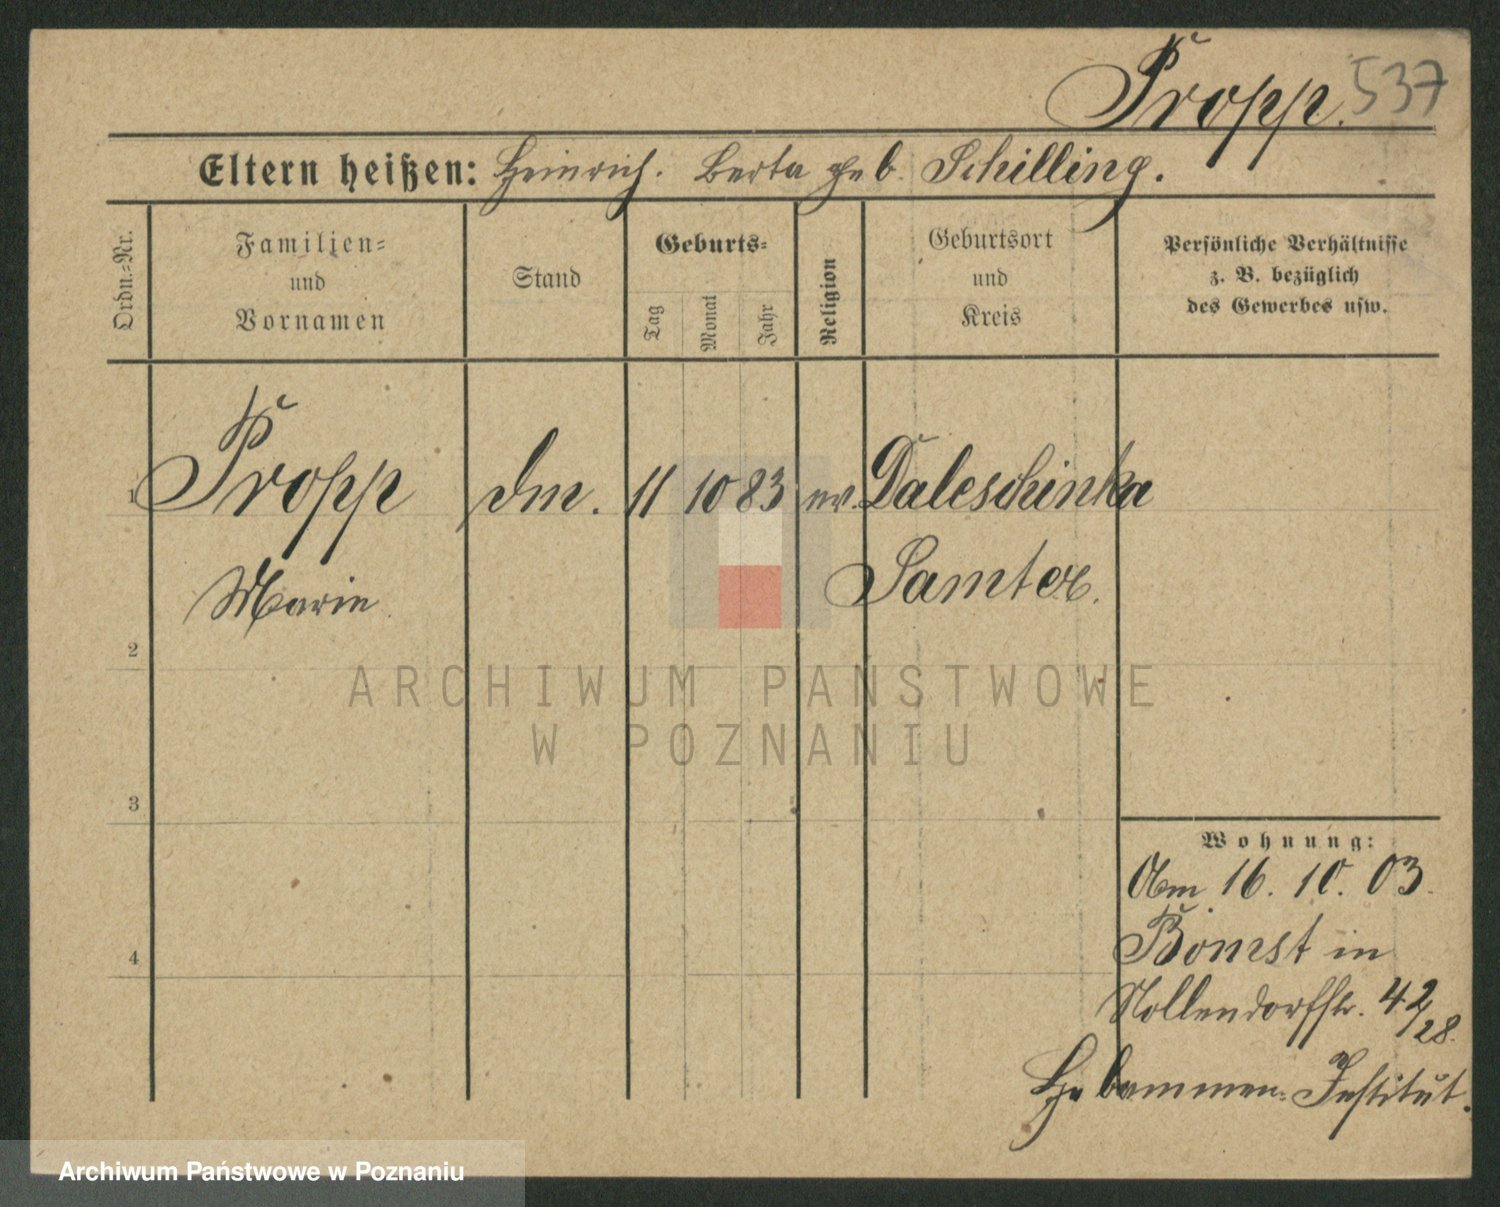 Propp. 537
Eltern heißen: Heinrich. Berta geb. Schilling.
Ordn.-Nr.
Familien-
und
Vornamen
Stand
Geburts-
Tag
Monat
Jahr
Religion
Geburtsort
und
Kreis
Persönliche Verhältnisse
z. B. bezüglich
des Gewerbes usw.
1 Propp dm. 11 10 83 ev. Daleschinka
Marie Samter.
2
3
4
Wohnung:
Am 16. 10. 03.
Bomst in
Nollendorfstr. 42/28.
Hebammen-Institut.
ARCHIWUM PAŃSTWOWE
W POZNANIU
Archiwum Państwowe w Poznaniu